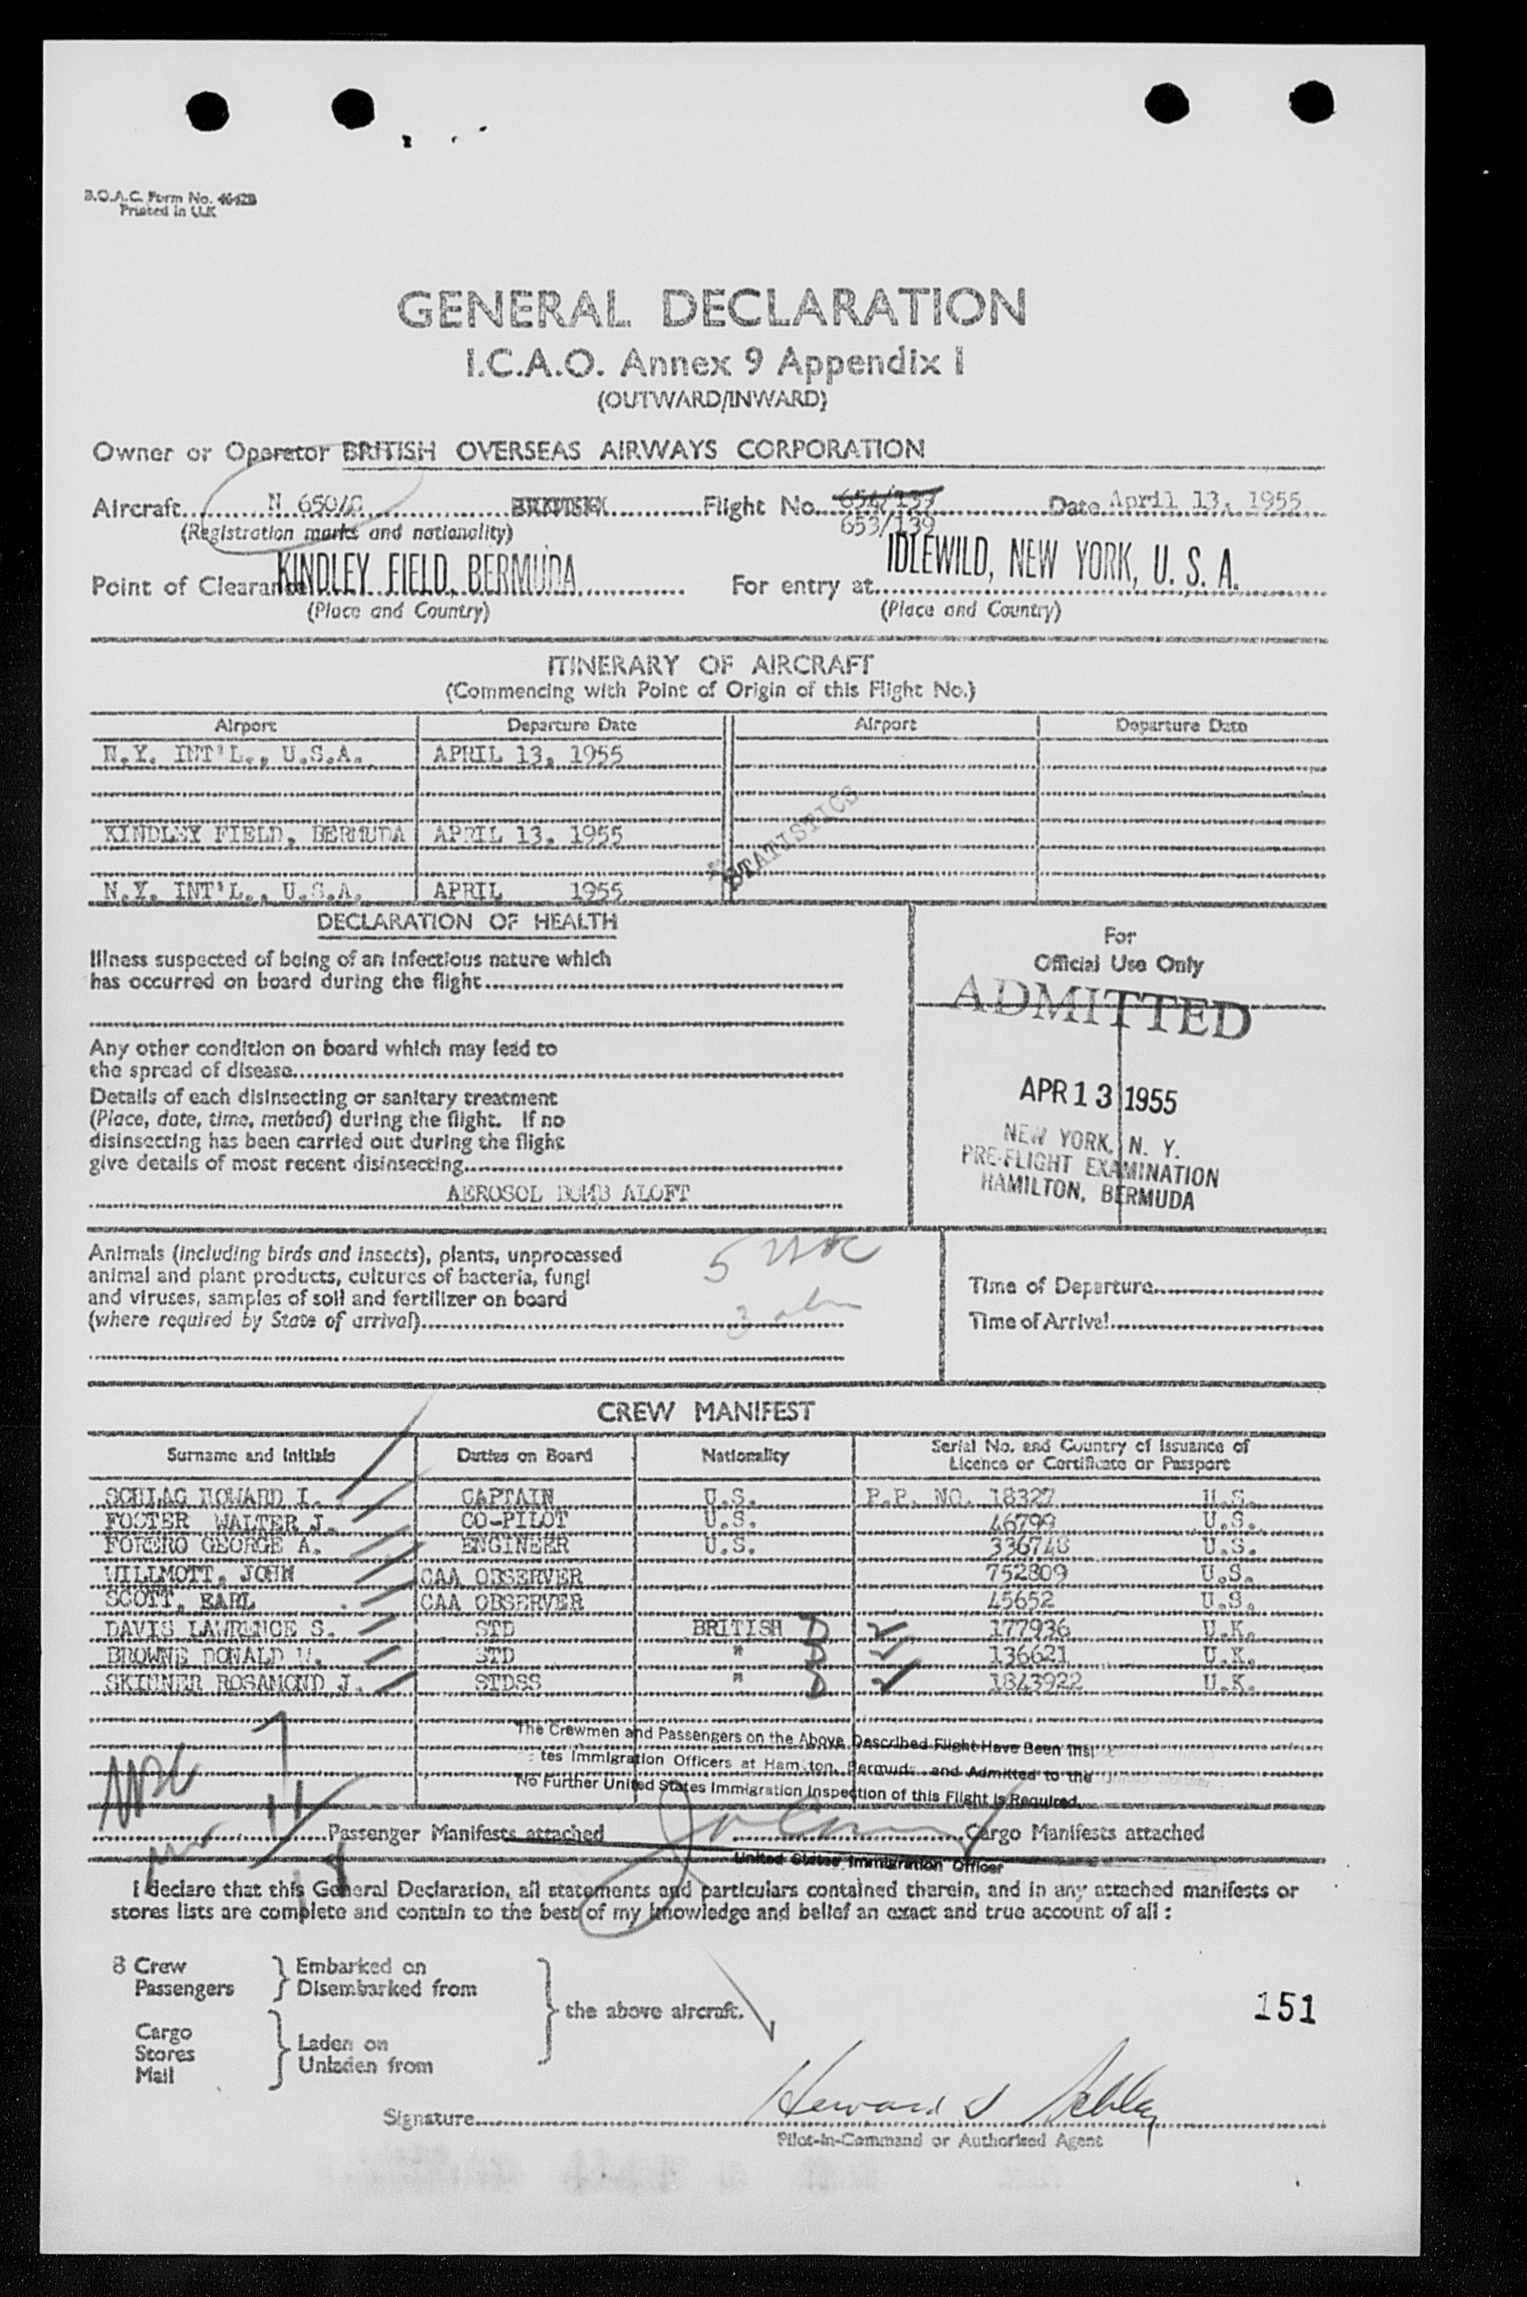 B.O.A.C. Form No. 4642B
Printed in U.K
GENERAL DECLARATION
I.C.A.O. Annex 9 Appendix I
(OUTWARD/INWARD)
Owner or Operator BRITISH OVERSEAS AIRWAYS CORPORATION
Aircraft N 650/C Flight No. 654/139 Date April 13, 1955
(Registration marks and nationality) 653/139
Point of Clearance KINDLEY FIELD, BERMUDA For entry at IDLEWILD, NEW YORK, U. S. A.
(Place and Country) (Place and Country)
ITINERARY OF AIRCRAFT
(Commencing with Point of Origin of this Flight No.)
Airport Departure Date Airport Departure Date
N.Y. INT'L., U.S.A. APRIL 13, 1955
KINDLEY FIELD, BERMUDA APRIL 13, 1955
STATISTICS
N.Y. INT'L., U.S.A. APRIL 1955
DECLARATION OF HEALTH
Illness suspected of being of an infectious nature which
has occurred on board during the flight
Any other condition on board which may lead to
the spread of disease
Details of each disinsecting or sanitary treatment
(Place, date, time, method) during the flight. If no
disinsecting has been carried out during the flight
give details of most recent disinsecting
AEROSOL BOMB ALOFT
For
Official Use Only
ADMITTED
APR 13 1955
NEW YORK, N. Y.
PRE-FLIGHT EXAMINATION
HAMILTON, BERMUDA
Animals (including birds and insects), plants, unprocessed
animal and plant products, cultures of bacteria, fungi
and viruses, samples of soil and fertilizer on board
(where required by State of arrival)
5 USC
3 alm
Time of Departure
Time of Arrival
CREW MANIFEST
Surname and Initials Duties on Board Nationality Serial No. and Country of Issuance of
Licence or Certificate or Passport
SCHLAG HOWARD I. CAPTAIN U.S. P.P. NO. 18327 U.S.
FOSTER WALTER J. CO-PILOT U.S. 46799 U.S.
FORERO GEORGE A. ENGINEER U.S. 336748 U.S.
WILLMOTT, JOHN CAA OBSERVER 752809 U.S.
SCOTT, EARL CAA OBSERVER 45652 U.S.
DAVIS LAWRENCE S. STD BRITISH D 177936 U.K.
BROWNE DONALD W. STD " D 136621 U.K.
SKINNER ROSAMOND J. STDSS " D 1843922 U.K.
The Crewmen and Passengers on the Above Described Flight Have Been Insp
tes Immigration Officers at Hamilton, Bermuda and Admitted to the United States
No Further United States Immigration Inspection of this Flight is Required.
Passenger Manifests attached Cargo Manifests attached
United States Immigration Officer
I declare that this General Declaration, all statements and particulars contained therein, and in any attached manifests or
stores lists are complete and contain to the best of my knowledge and belief an exact and true account of all :
8 Crew
Passengers
Embarked on
Disembarked from
Cargo
Stores
Mail
Laden on
Unladen from
the above aircraft.
151
Signature
Pilot-in-Command or Authorised Agent